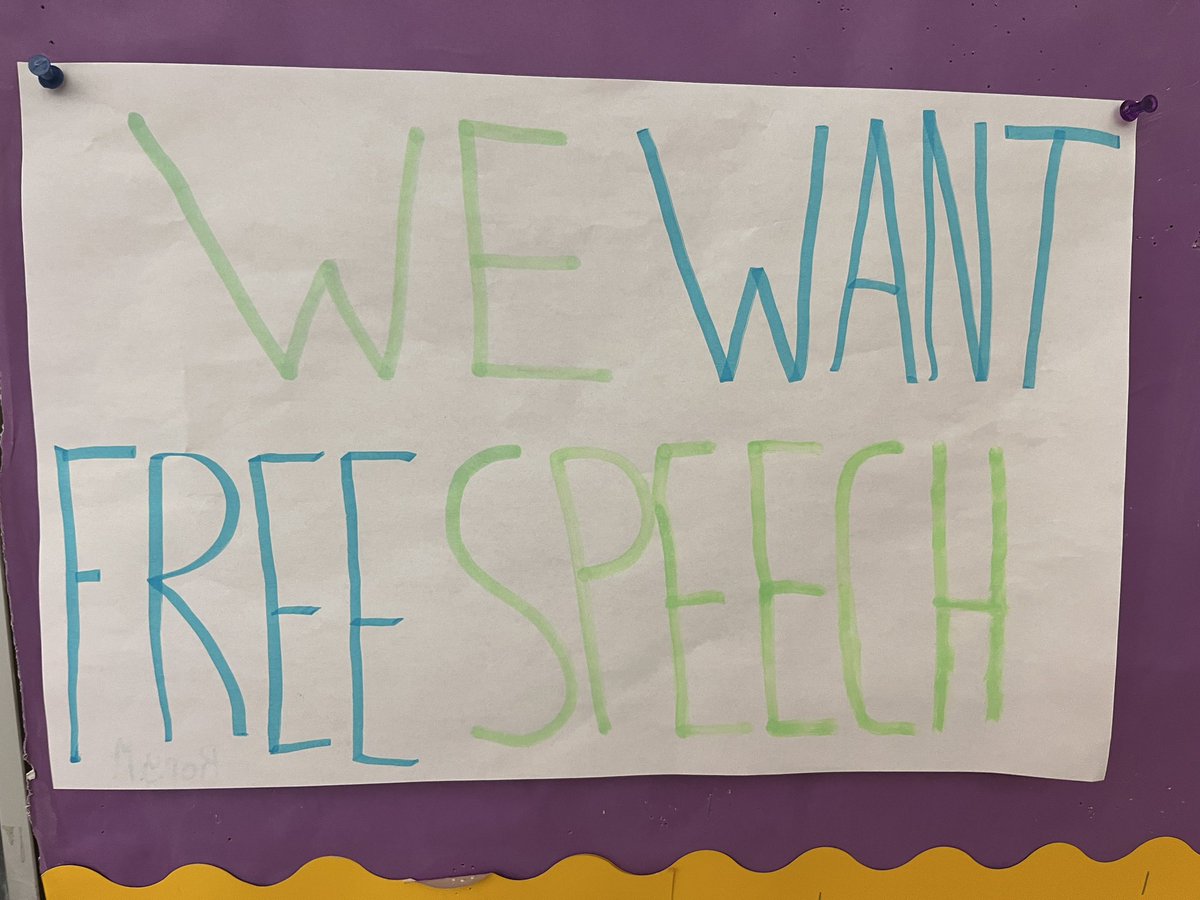 WE WANT
FREE SPEECH